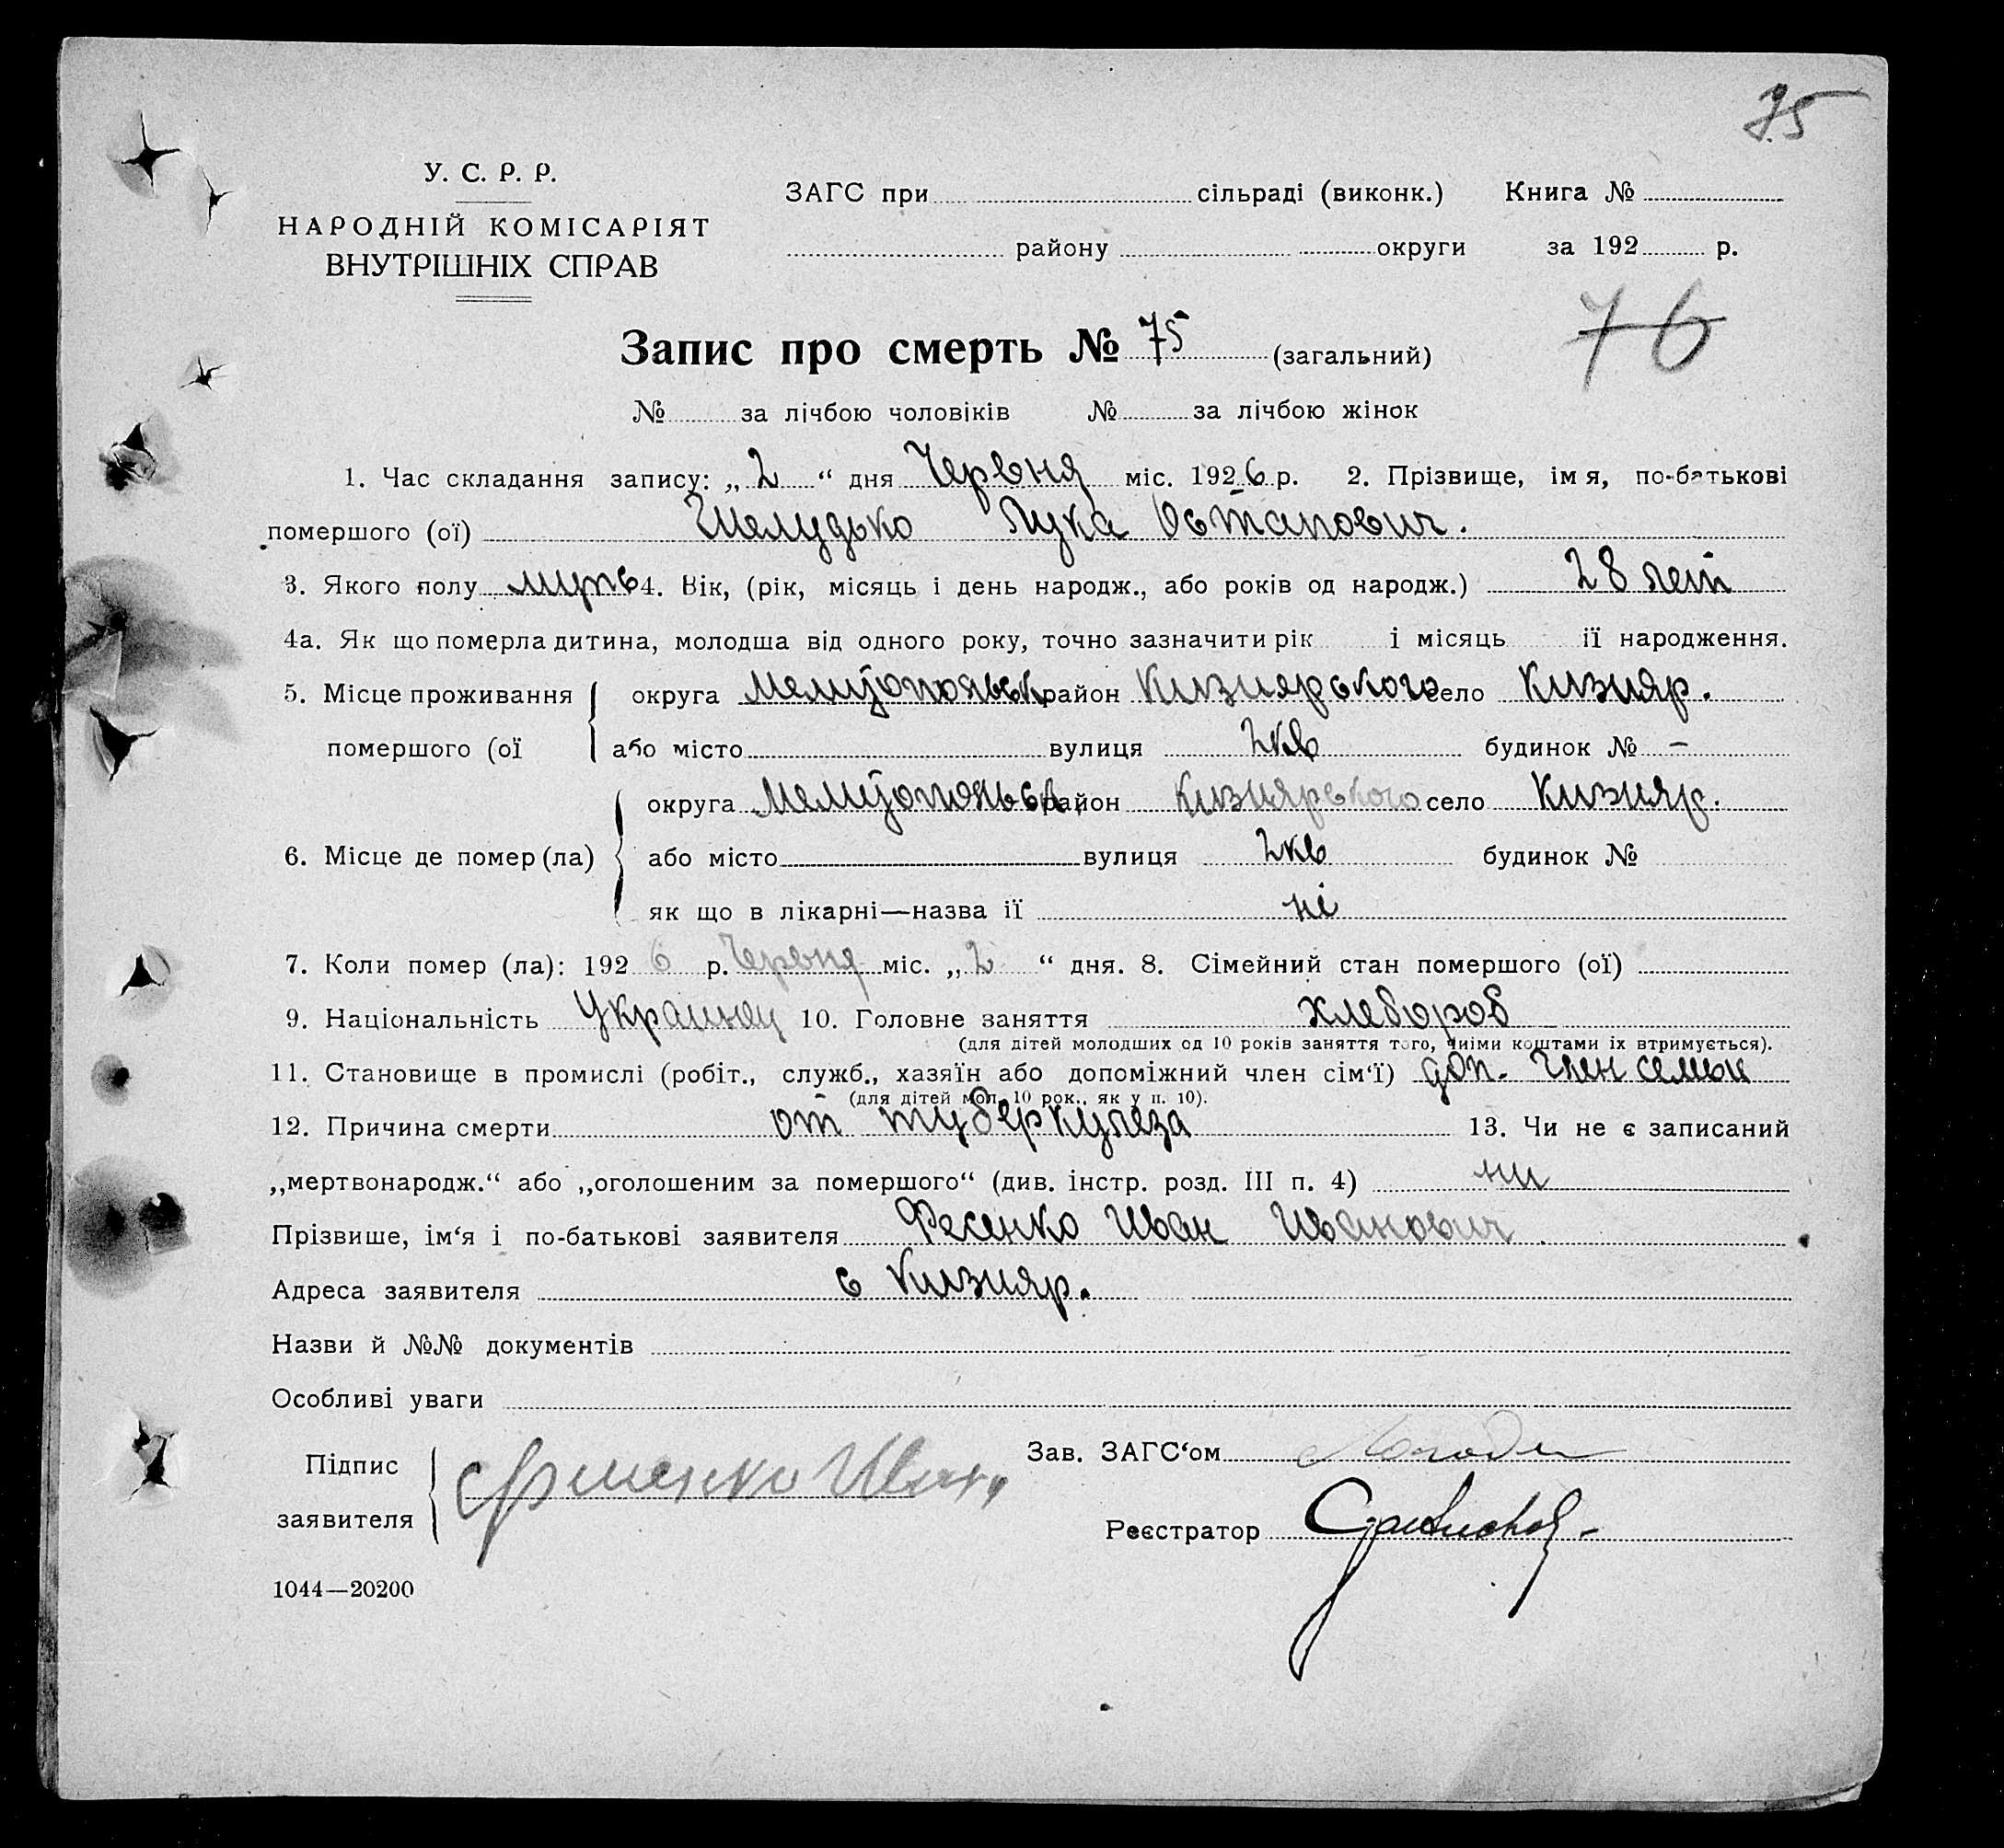 75
У. С. Р. Р.
НАРОДНІЙ КОМІСАРІЯТ
ВНУТРІШНІХ СПРАВ
ЗАГС при сільраді (виконк.) Книга №
району округи за 192 р.
Запис про смерть № 75 (загальний)
76
№ за лічбою чоловіків № за лічбою жінок
1. Час складання запису: „ 2 “ дня Червня міс. 1926 р. 2. Прізвище, імя, по-батькові
помершого (ої) Шелудько Лука Остапович.
3. Якого полу муж 4. Вік, (рік, місяць і день народж., або років од народж.) 28 лет
4а. Як що померла дитина, молодша від одного року, точно зазначити рік і місяць її народження.
5. Місце проживання округа Мелитопольськ район Кизиярського село Кизияр.
помершого (ої або місто вулиця 2кв будинок № –
округа Мелитопольськ район Кизиярського село Кизияр.
6. Місце де помер (ла) або місто вулиця 2кв будинок №
як що в лікарні—назва її ні
7. Коли помер (ла): 1926 р. Червня міс. „ 2 “ дня. 8. Сімейний стан помершого (ої)
9. Національність Украинец 10. Головне заняття хлебороб
(для дітей молодших од 10 років заняття того, чиіми коштами їх втримується).
11. Становище в промислі (робіт., служб., хазяїн або допоміжний член сім‘ї) доп. член семьи
(для дітей мол. 10 рок., як у п. 10).
12. Причина смерти от туберкулеза 13. Чи не є записаний
„мертвонародж.“ або „оголошеним за помершого“ (див. інстр. розд. III п. 4) ни
Прізвише, ім‘я і по-батькові заявителя Фесенко Иван Иванович
Адреса заявителя с Кизияр.
Назви й №№ документів
Особливі уваги
Підпис Зав. ЗАГС‘ом
заявителя Реєстратор
1044—20200